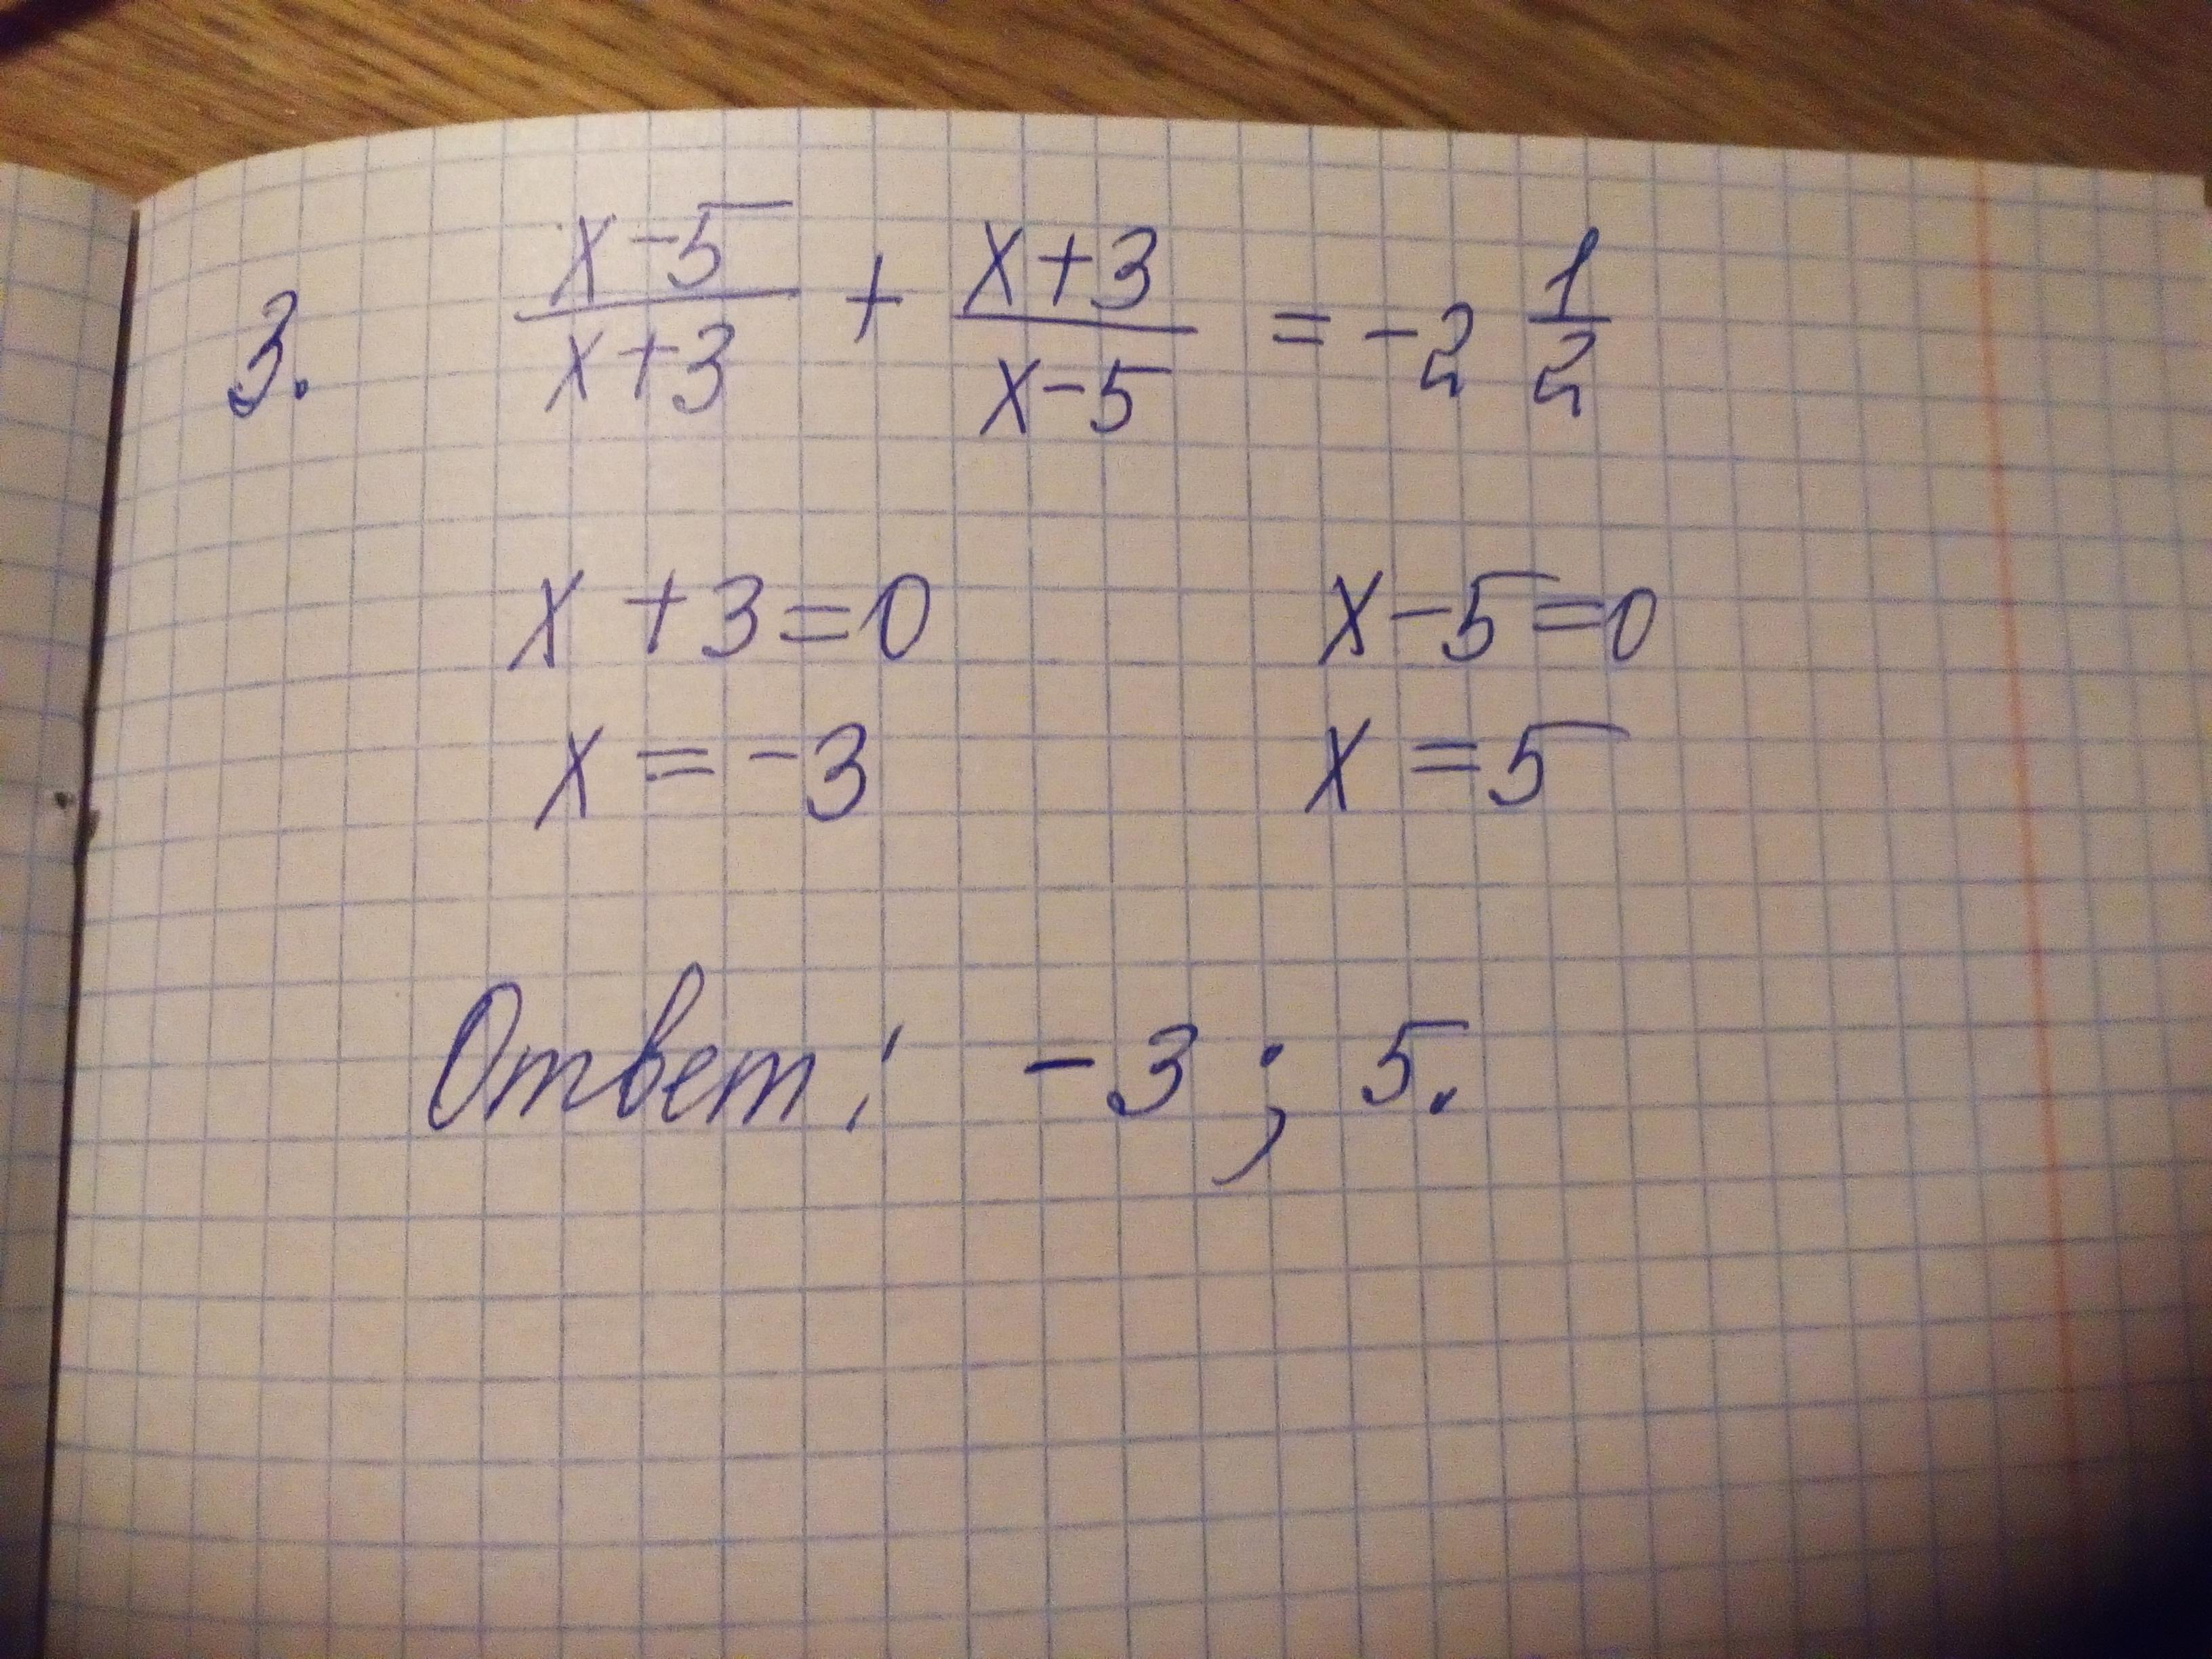 3. (x-5)/(x+3) + (x+3)/(x-5) = -2 1/2
x+3=0 x-5=0
x=-3 x=5
Ответ: -3; 5.